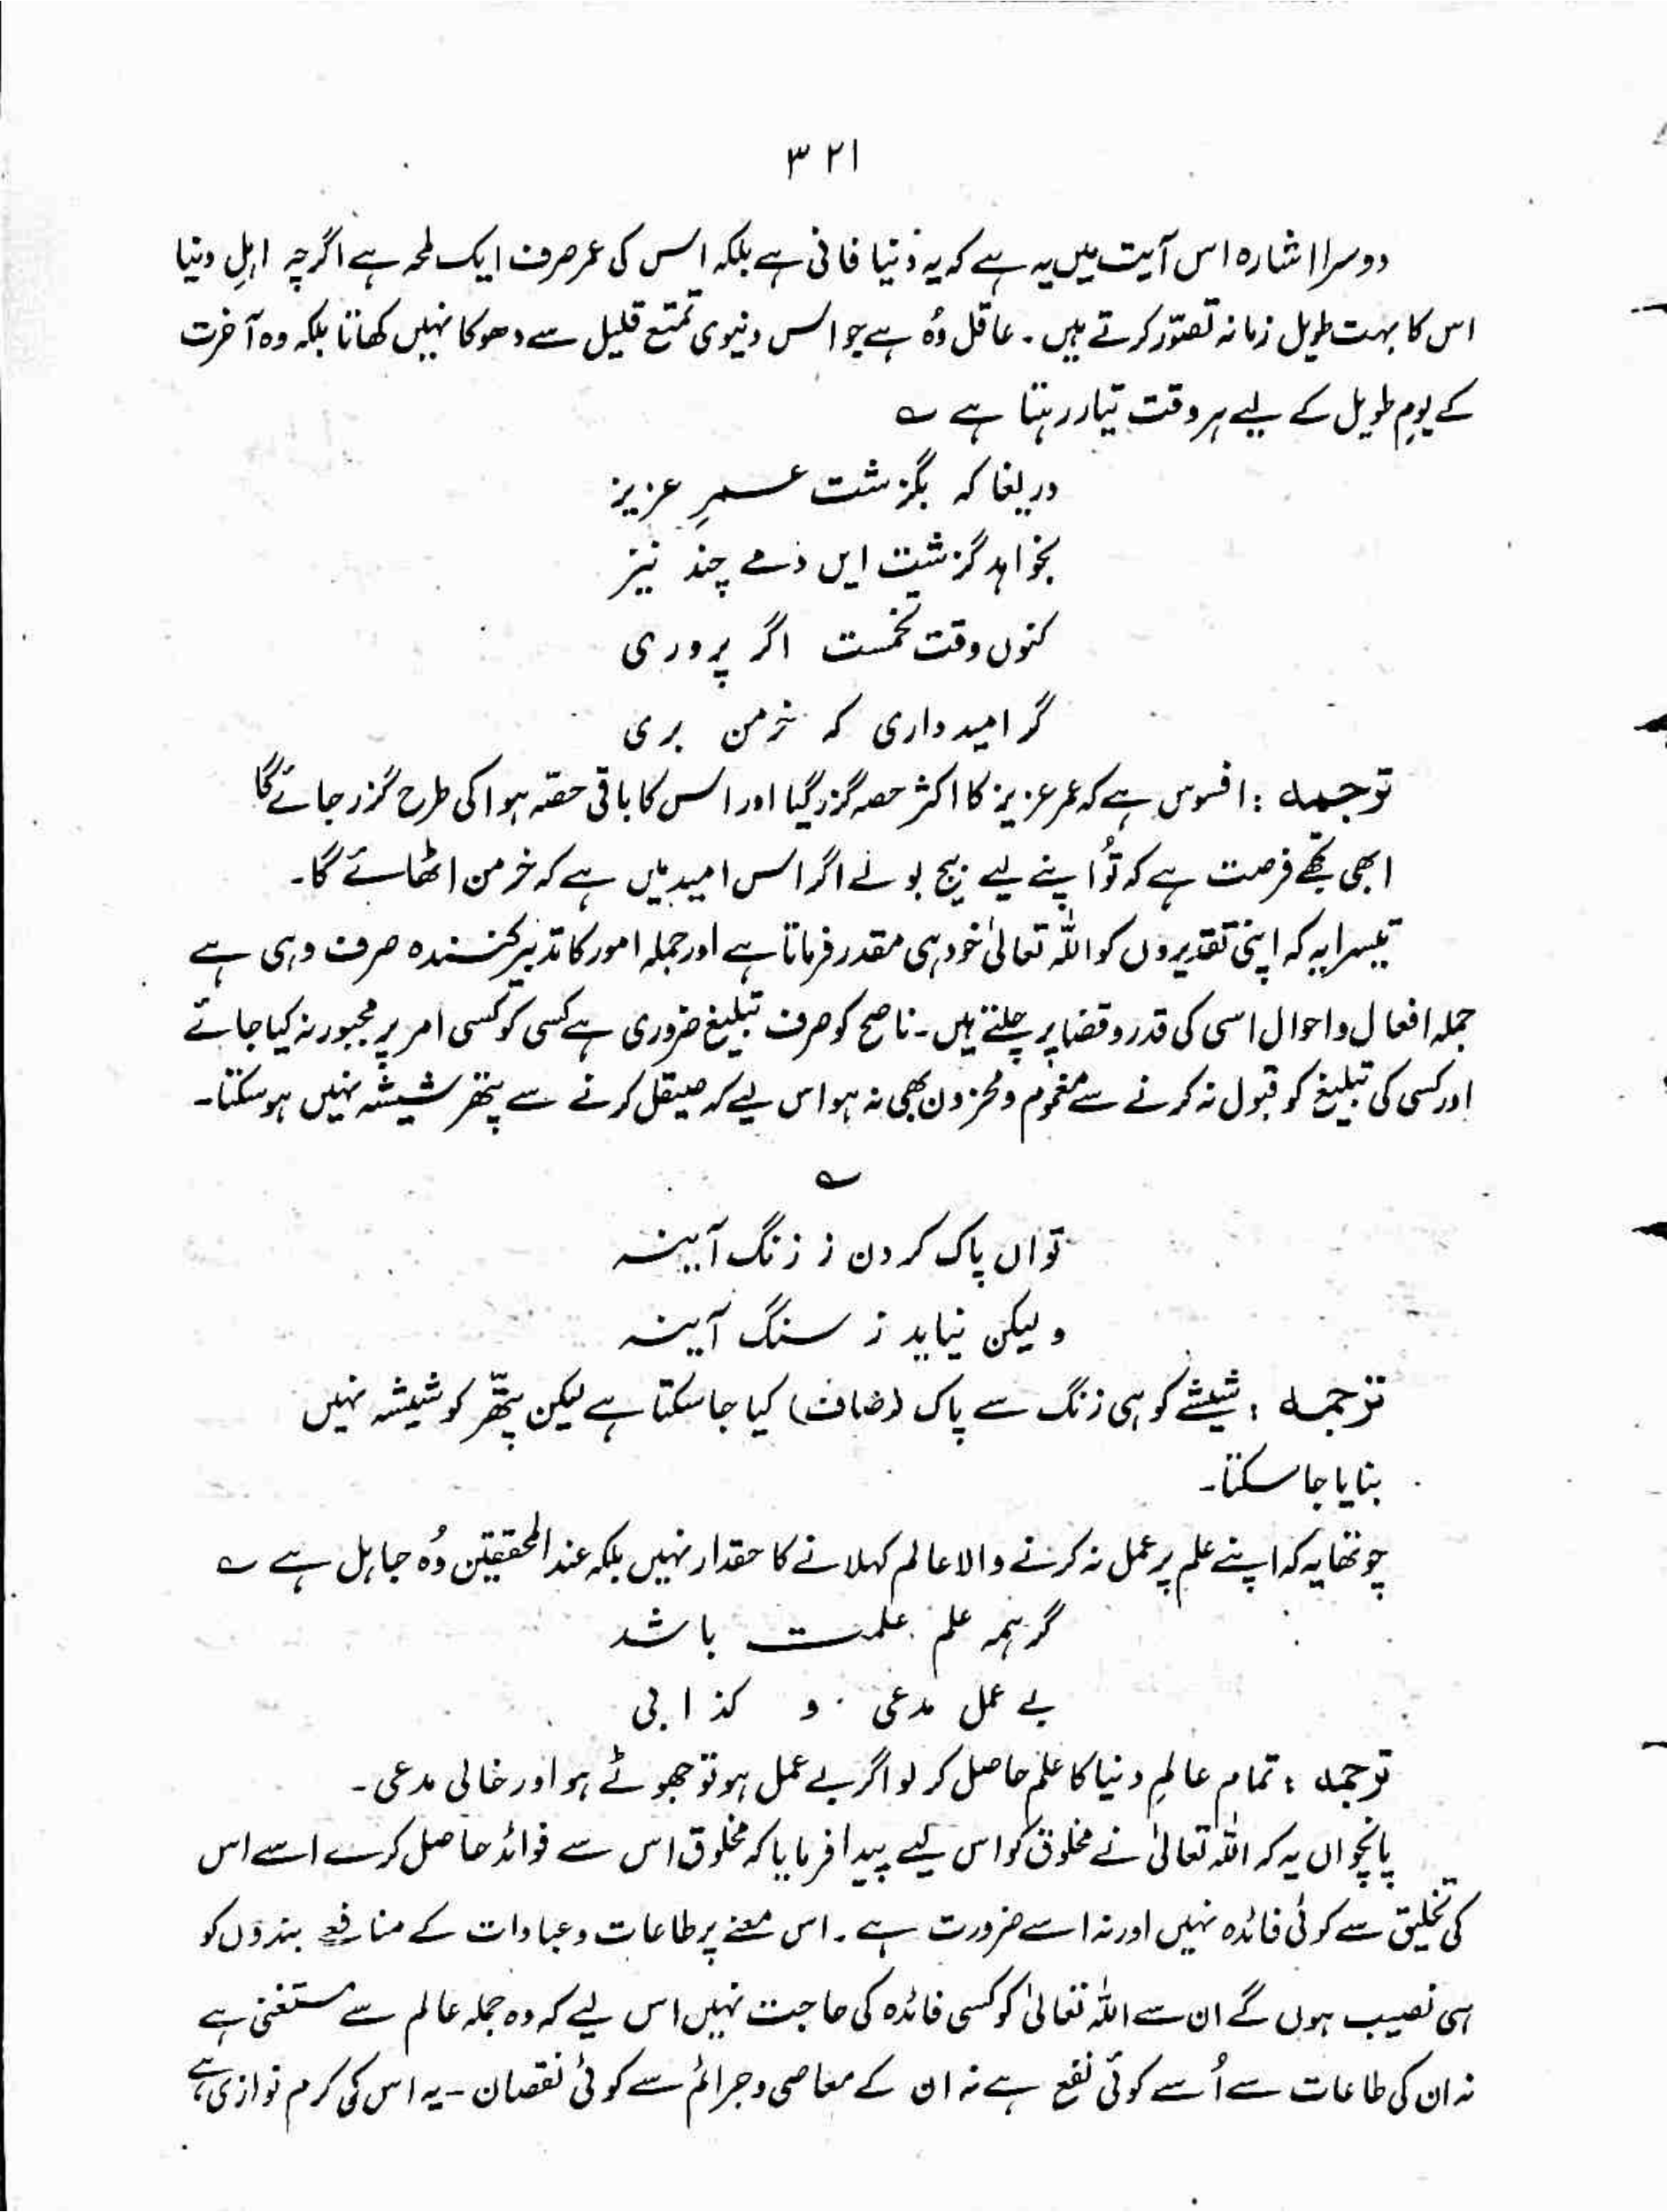 ۳۲۱
دوسرا اشارہ اس آیت میں یہ ہے کہ یہ دُنیا فانی ہے بلکہ اس کی عمر صرف ایک لمحہ ہے اگرچہ اہلِ دنیا
اس کا بہت طویل زمانہ تصوّر کرتے ہیں ۔ عاقل وُہ ہے جو اس دنیوی تمتع قلیل سے دھوکا نہیں کھاتا بلکہ وہ آخرت
کے یومِ طویل کے لیے ہر وقت تیار رہتا ہے ؎
دریغا کہ بگزشت عمرِ عزیز
بخواہد گزشت ایں دمے چند نیز
کنوں وقت تخمست اگر پروری
گر امید داری کہ خرمن بری
ترجمہ : افسوس ہے کہ عمر عزیز کا اکثر حصہ گزر گیا اور اس کا باقی حصّہ ہوا کی طرح گزر جائے گا
ابھی تجھے فرصت ہے کہ تُو اپنے لیے بیج بولے اگر اس امید میں ہے کہ خرمن اٹھائے گا۔
تیسرا یہ کہ اپنی تقدیروں کو اللہ تعالیٰ خود ہی مقدر فرماتا ہے اور جملہ امور کا تدبیر کنندہ صرف وہی ہے
جملہ افعال و احوال اسی کی قدر و قضا پر چلتے ہیں ۔ ناصح کو صرف تبلیغ ضروری ہے کسی کو کسی امر پر مجبور نہ کیا جائے
اور کسی کی تبلیغ کو قبول نہ کرنے سے مغموم و محزون بھی نہ ہو اس لیے کہ صیقل کرنے سے پتھر شیشہ نہیں ہو سکتا ۔
؎
تواں پاک کردن ز زنگ آیینہ
ولیکن نیاید ز سنگ آیینہ
ترجمہ : شیشے کو ہی زنگ سے پاک (صاف) کیا جا سکتا ہے لیکن پتھّر کو شیشہ نہیں
بنایا جا سکتا۔
چوتھا یہ کہ اپنے علم پر عمل نہ کرنے والا عالم کہلانے کا حقدار نہیں بلکہ عند المحققین وُہ جاہل ہے ؎
گر ہمہ علم علمت باشد
بے عمل مدعی و کذابی
ترجمہ : تمام عالمِ دنیا کا علم حاصل کر لو اگر بے عمل ہو تو جھوٹے ہو اور خالی مدعی ۔
پانچواں یہ کہ اللہ تعالیٰ نے مخلوق کو اس لیے پیدا فرمایا کہ مخلوق اس سے فوائد حاصل کرے اسے اس
کی تخلیق سے کوئی فائدہ نہیں اور نہ اسے ضرورت ہے ۔ اس معنے پر طاعات و عبادات کے منافع بندوں کو
ہی نصیب ہوں گے ان سے اللہ تعالیٰ کو کسی فائدہ کی حاجت نہیں اس لیے کہ وہ جملہ عالم سے مستغنی ہے
نہ ان کی طاعات سے اُسے کوئی نفع ہے نہ ان کے معاصی و جرائم سے کوئی نقصان ۔ یہ اس کی کرم نوازی ہے